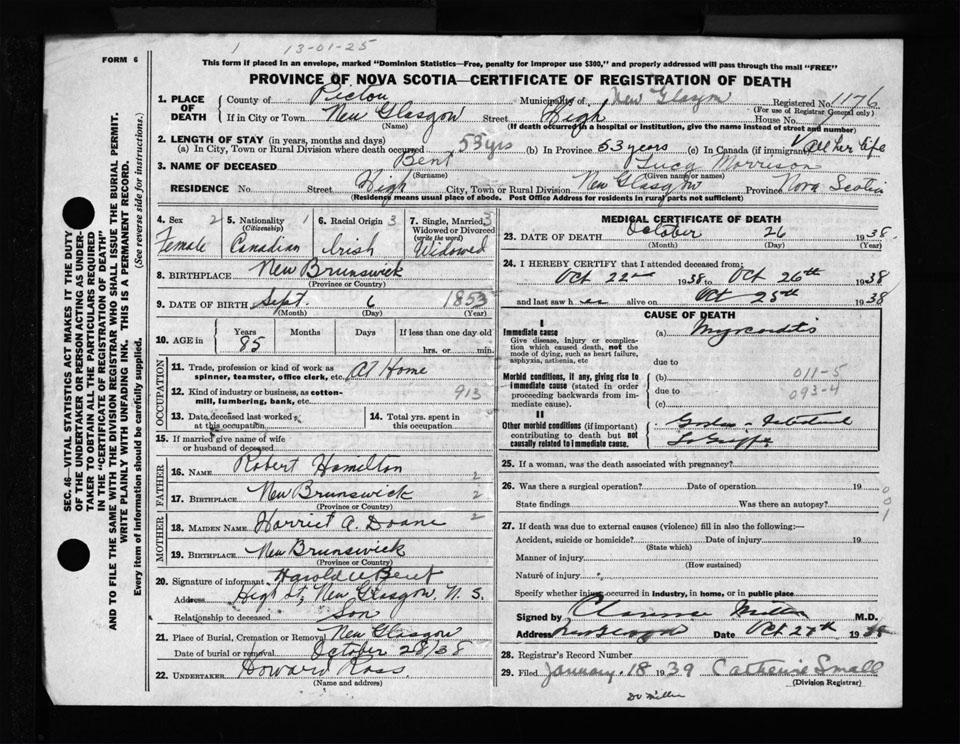 1 13-01-25
FORM 6
This form if placed in an envelope, marked "Dominion Statistics—Free, penalty for improper use $300," and properly addressed will pass through the mail "FREE"
PROVINCE OF NOVA SCOTIA—CERTIFICATE OF REGISTRATION OF DEATH
SEC. 46—VITAL STATISTICS ACT MAKES IT THE DUTY
OF THE UNDERTAKER OR PERSON ACTING AS UNDER-
TAKER TO OBTAIN ALL THE PARTICULARS REQUIRED
IN THE "CERTIFICATE OF REGISTRATION OF DEATH"
AND TO FILE THE SAME WITH THE DIVISION REGISTRAR WHO SHALL ISSUE THE BURIAL PERMIT.
WRITE PLAINLY WITH UNFADING INK. THIS IS A PERMANENT RECORD.
Every item of information should be carefully supplied. (See reverse side for instructions.)
1. PLACE OF DEATH County of Pictou Municipality of New Glasgow Registered No. 1176
(For use of Registrar General only)
If in City or Town New Glasgow Street High House No.
(Name) (If death occurred in a hospital or institution, give the name instead of street and number)
2. LENGTH OF STAY (in years, months and days)
(a) In City, Town or Rural Division where death occurred 53 yrs (b) In Province 53 years (c) In Canada (if immigrant) All her life
3. NAME OF DECEASED Bent Lucy Morrison
(Surname) (Given name or names)
RESIDENCE No. Street High City, Town or Rural Division New Glasgow Province Nova Scotia
(Residence means usual place of abode. Post Office Address for residents in rural parts not sufficient)
4. Sex 2 5. Nationality 1 6. Racial Origin 3 7. Single, Married, Widowed or Divorced (write the word) 3
Female Canadian Irish Widowed
8. BIRTHPLACE New Brunswick
(Province or Country)
9. DATE OF BIRTH Sept. 6 1853
(Month) (Day) (Year)
10. AGE in Years Months Days If less than one day old
85 hrs. or min.
OCCUPATION
11. Trade, profession or kind of work as spinner, teamster, office clerk, etc. At Home
12. Kind of industry or business, as cotton-mill, lumbering, bank, etc. 913
13. Date deceased last worked at this occupation 14. Total yrs. spent in this occupation
15. If married give name of wife or husband of deceased
FATHER
16. NAME Robert Hamilton 2
17. BIRTHPLACE New Brunswick 2
(Province or Country)
MOTHER
18. MAIDEN NAME Harriet A. Doane 2
19. BIRTHPLACE New Brunswick
(Province or Country)
20. Signature of informant Harold W Bent
Address High St, New Glasgow, N. S.
Relationship to deceased Son
21. Place of Burial, Cremation or Removal New Glasgow
Date of burial or removal October 28/38
22. UNDERTAKER Howard Ross
(Name and address)
MEDICAL CERTIFICATE OF DEATH
23. DATE OF DEATH October 26 1938.
(Month) (Day) (Year)
24. I HEREBY CERTIFY that I attended deceased from:
Oct 22nd 1938 to Oct 26th 1938
and last saw her alive on Oct 25th 1938
CAUSE OF DEATH
I
Immediate cause
Give disease, injury or complication which caused death, not the mode of dying, such as heart failure, asphyxia, asthenia, etc
(a) Myocarditis
due to
Morbid conditions, if any, giving rise to immediate cause (stated in order proceeding backwards from immediate cause).
(b) 011-5
due to 093-4
(c)
II
Other morbid conditions (if important) contributing to death but not causally related to immediate cause.
La Grippe
25. If a woman, was the death associated with pregnancy?
26. Was there a surgical operation? Date of operation 19 0
State findings Was there an autopsy? 0
1
27. If death was due to external causes (violence) fill in also the following:—
Accident, suicide or homicide? Date of injury 19
(State which)
Manner of injury
(How sustained)
Nature of injury
Specify whether injury occurred in industry, in home, or in public place
Signed by Clarence Miller M.D.
Address New Glasgow Date Oct 27th 1938
28. Registrar's Record Number
29. Filed January 18 1939 Catherine Small
(Division Registrar)
Dr Miller